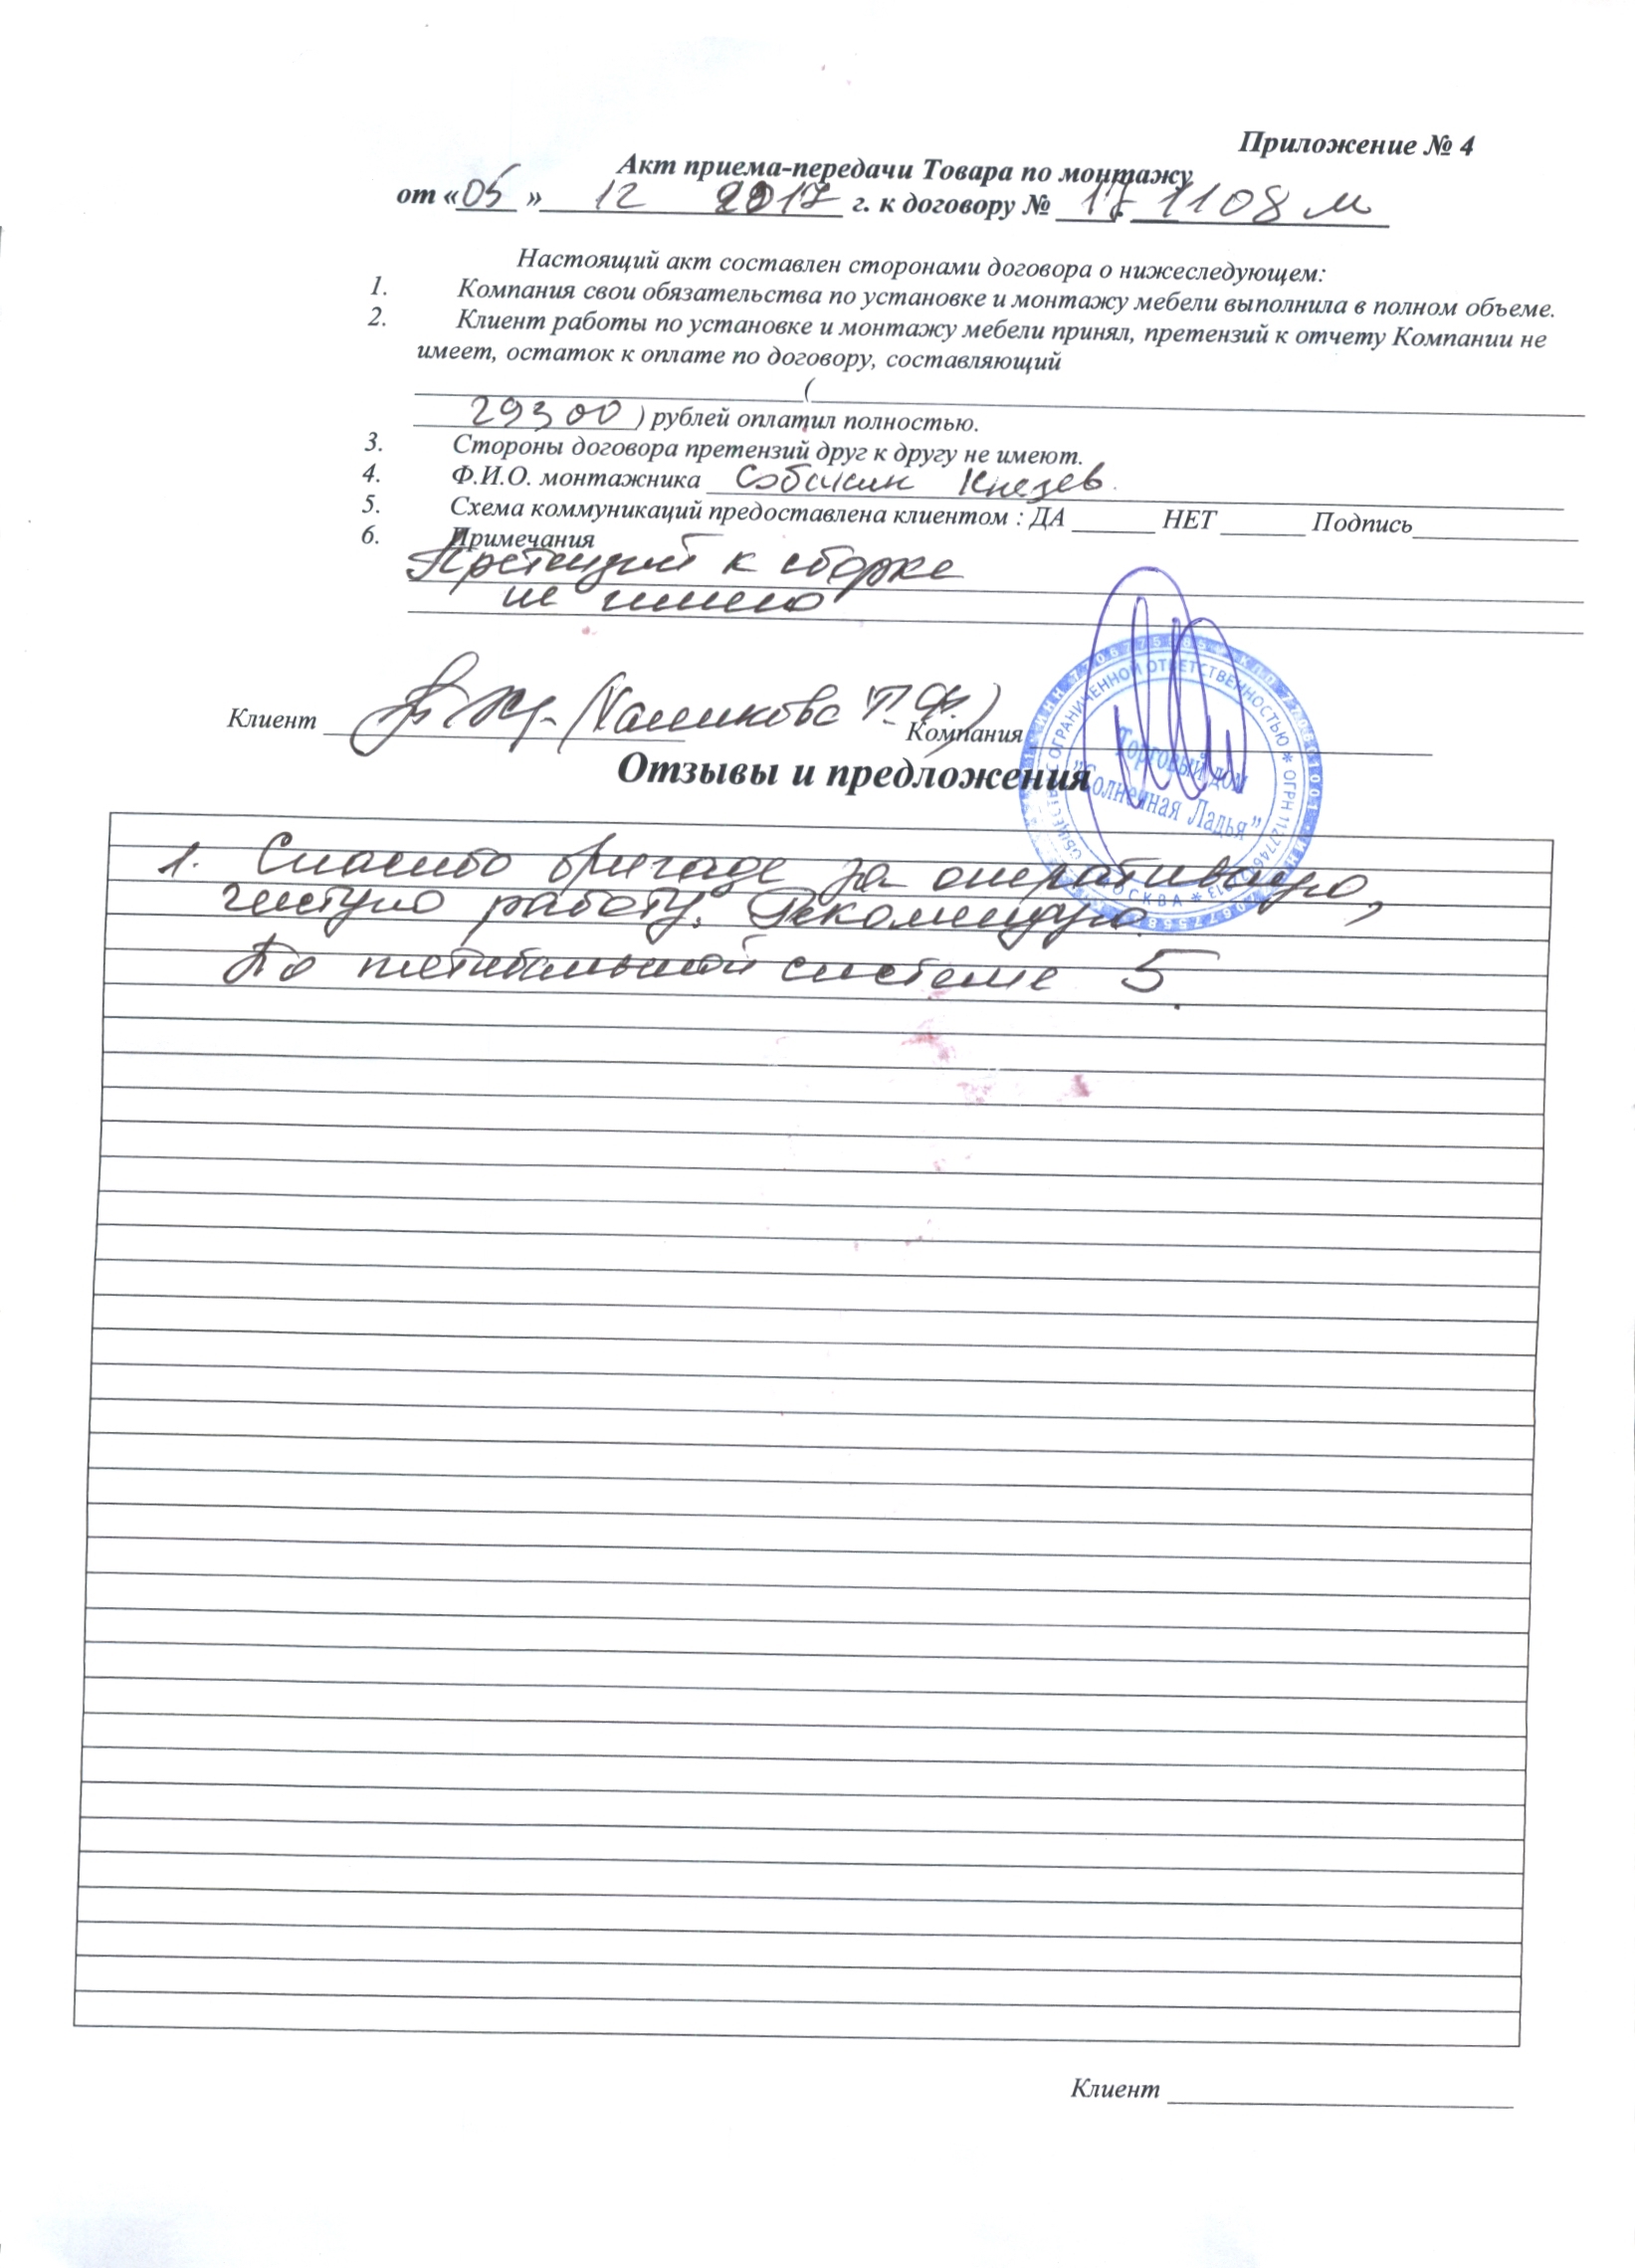 Приложение № 4
Акт приема-передачи Товара по монтажу
от «05» 12 2017 г. к договору № 17.1108 м
Настоящий акт составлен сторонами договора о нижеследующем:
1. Компания свои обязательства по установке и монтажу мебели выполнила в полном объеме.
2. Клиент работы по установке и монтажу мебели принял, претензий к отчету Компании не
имеет, остаток к оплате по договору, составляющий
(
29300 ) рублей оплатил полностью.
3. Стороны договора претензий друг к другу не имеют.
4. Ф.И.О. монтажника Князев
5. Схема коммуникаций предоставлена клиентом : ДА НЕТ Подпись
6. Примечания
Претензий к сборке
не имею
Клиент Компания
Торговый дом
"Солнечная Ладья"
Отзывы и предложения
1. Спасибо бригаде за оперативную,
чистую работу. Рекомендую.
По пятибальной системе 5.
Клиент